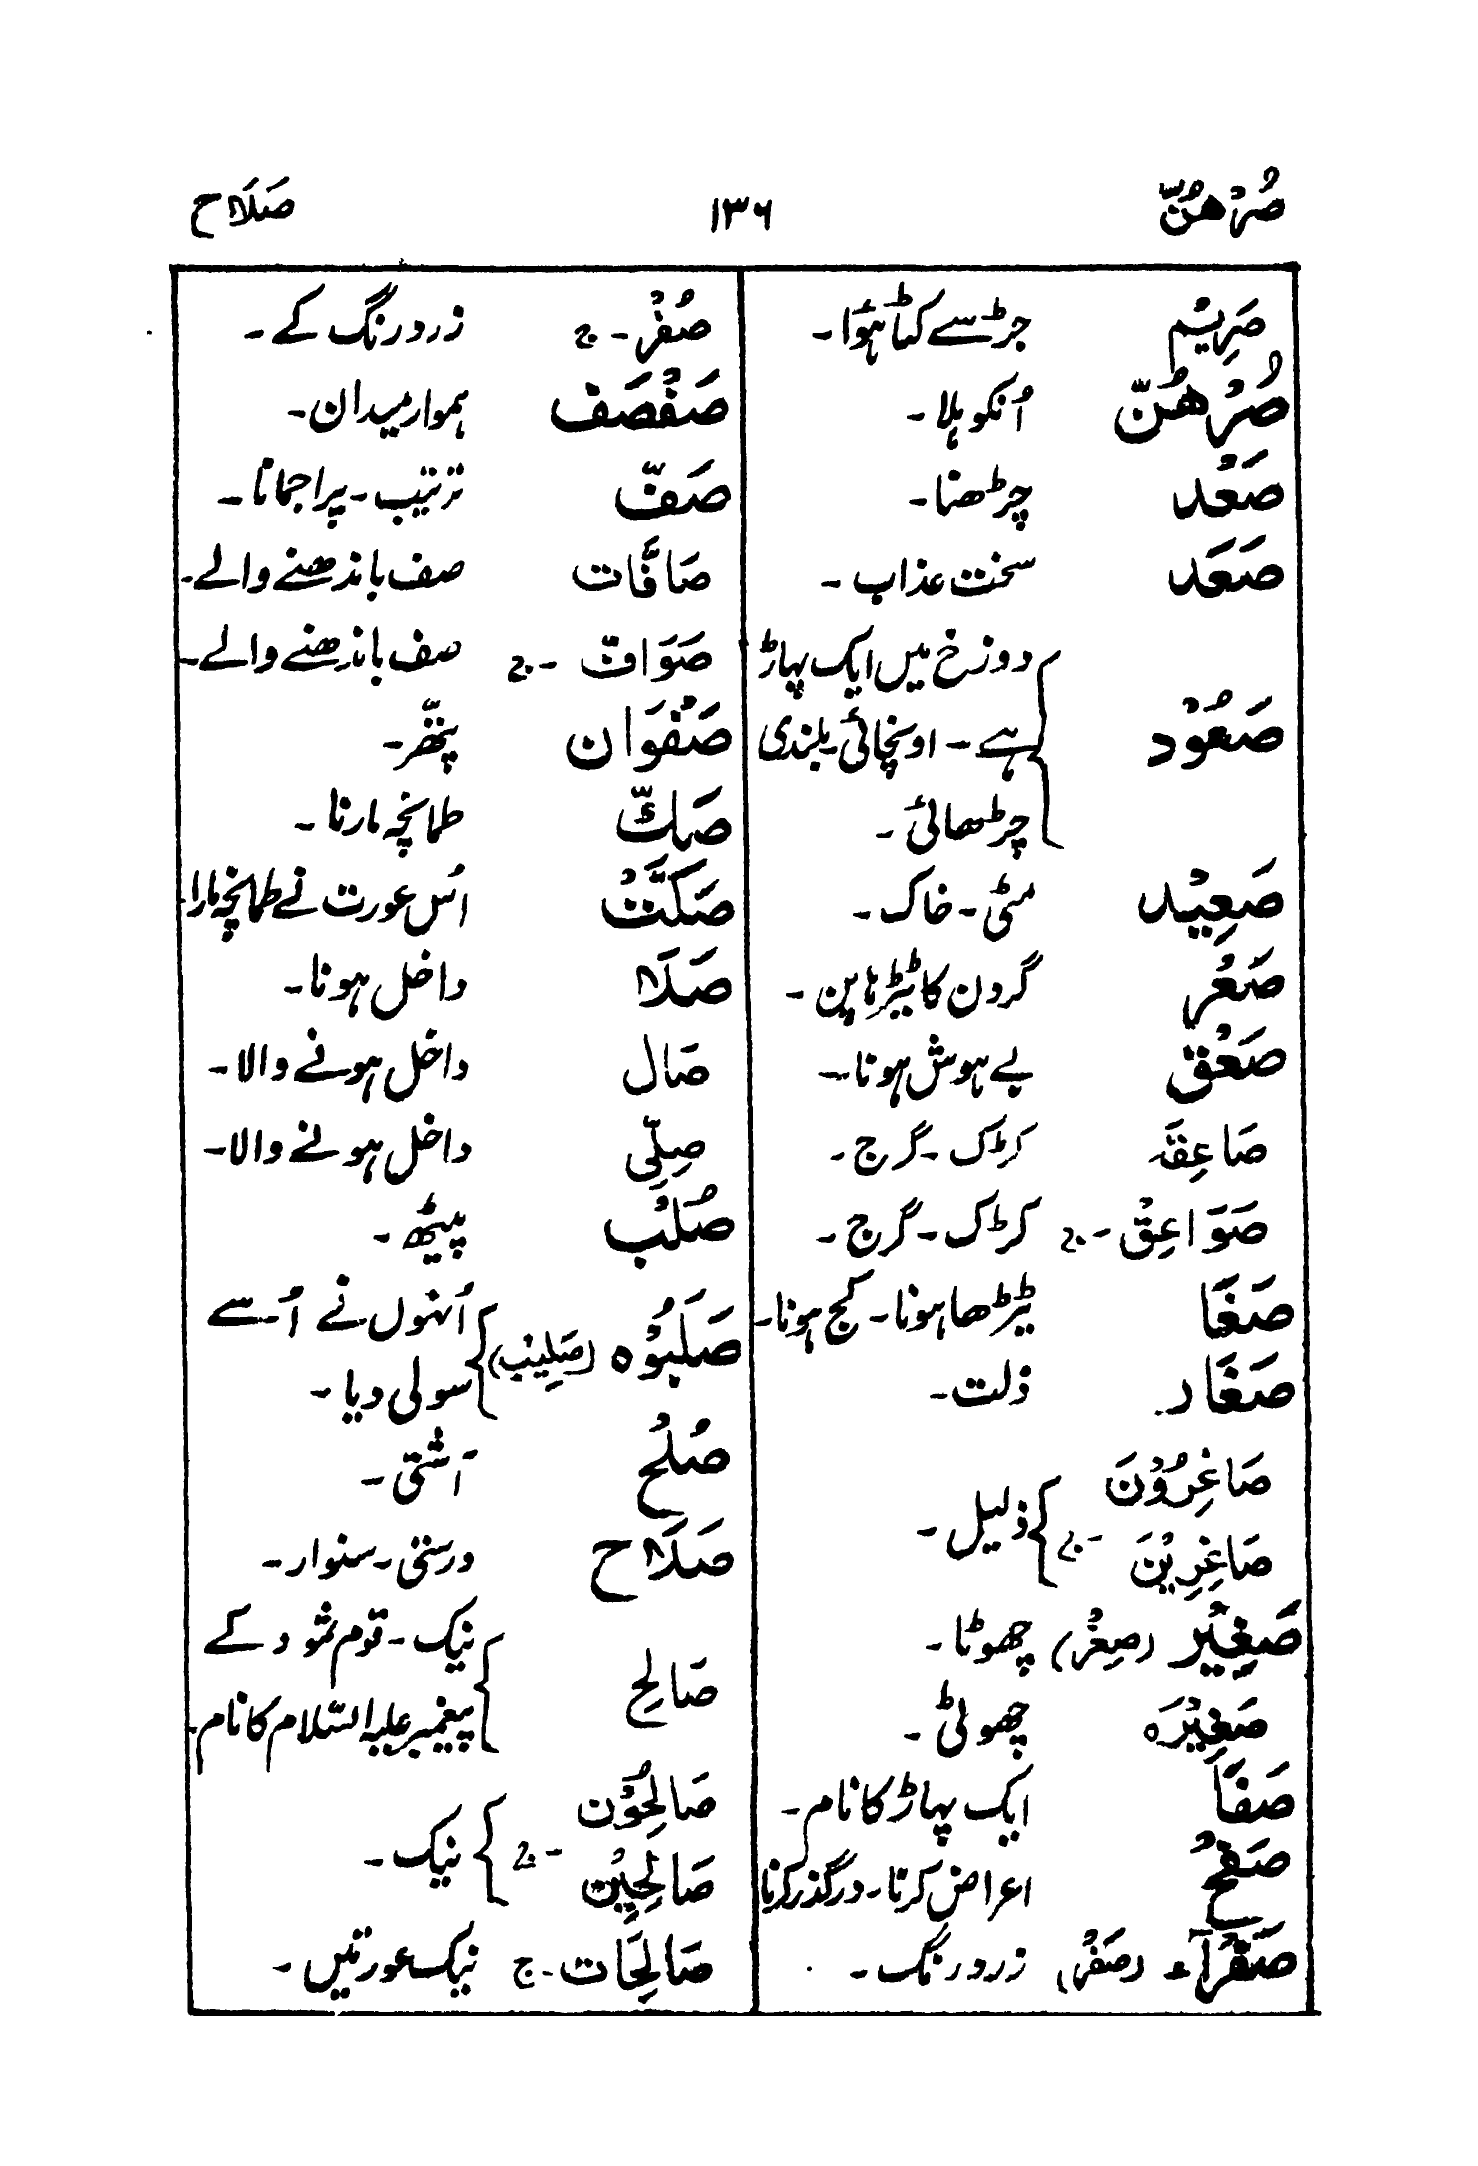 صُرْهُنّ ۱۳۶ صَلَاح
صَرِيْم جڑ سے کٹا ہؤا ۔
صُرْهُنّ اُنکو ہلا ۔
صَعْد چڑھنا ۔
صَعَد سخت عذاب ۔
دوزخ میں ایک پہاڑ
صَعُوْد ہے ۔ اونچائی ۔ بلندی
چڑھائی ۔
صَعِيْد مٹی ۔ خاک ۔
صَعْر گردن کا ٹیڑھا پن ۔
صَعْق بے ہوش ہونا ۔
صَاعِقَه کڑک ۔ گرج ۔
صَوَاعِقْ ۔ ج کڑک ۔ گرج ۔
صَغَا ٹیڑھا ہونا ۔ کج ہونا ۔
صَغَار ذلت ۔
صَاغِرُوْنَ
صَاغِرِيْنَ ۔ ج ذلیل ۔
صَغِيْر (صِغْر) چھوٹا ۔
صَغِيْرَه چھوٹی ۔
صَفَا ایک پہاڑ کا نام ۔
صَفْحُ اعراض کرنا ۔ درگذر کرنا
صَفْرَآء (صَفْر) زرد رنگ ۔
صُفْر ۔ ج زرد رنگ کے ۔
صَفْصَف ہموار میدان ۔
صَفّ ترتیب ۔ پرا جمانا ۔
صَافَّات صف باندھنے والے ۔
صَوَافّ ۔ ج صف باندھنے والے ۔
صَفْوَان پتّھر ۔
صَكّ طمانچہ مارنا ۔
صَكَّتْ اُس عورت نے طمانچہ مارا
صَلَا داخل ہونا ۔
صَال داخل ہونے والا ۔
صِلِّى داخل ہونے والا ۔
صُلْب پیٹھ ۔
صَلَبُوْه (صَلِيْب) اُنہوں نے اُسے
سولی دیا ۔
صُلْح آشتی ۔
صَلَاح درستی ۔ سنوار ۔
صَالِح نیک ۔ قوم ثمود کے
پیغمبر علیہ السّلام کا نام ۔
صَالِحُوْن
صَالِحِيْن ۔ ج نیک ۔
صَالِحَات ۔ ج نیک عورتیں ۔